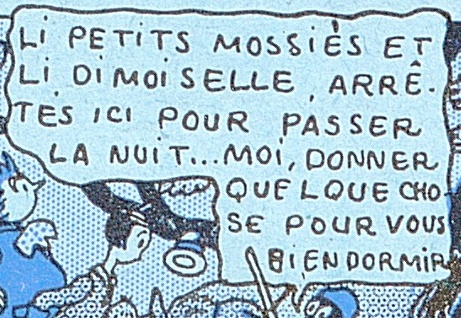 LI PETITS MOSSIÈS ET
LI DIMOISELLE, ARRÊ-
TÉS ICI POUR PASSER
LA NUIT... MOI, DONNER
QUELQUE CHO-
SE POUR VOUS
BIEN DORMIR